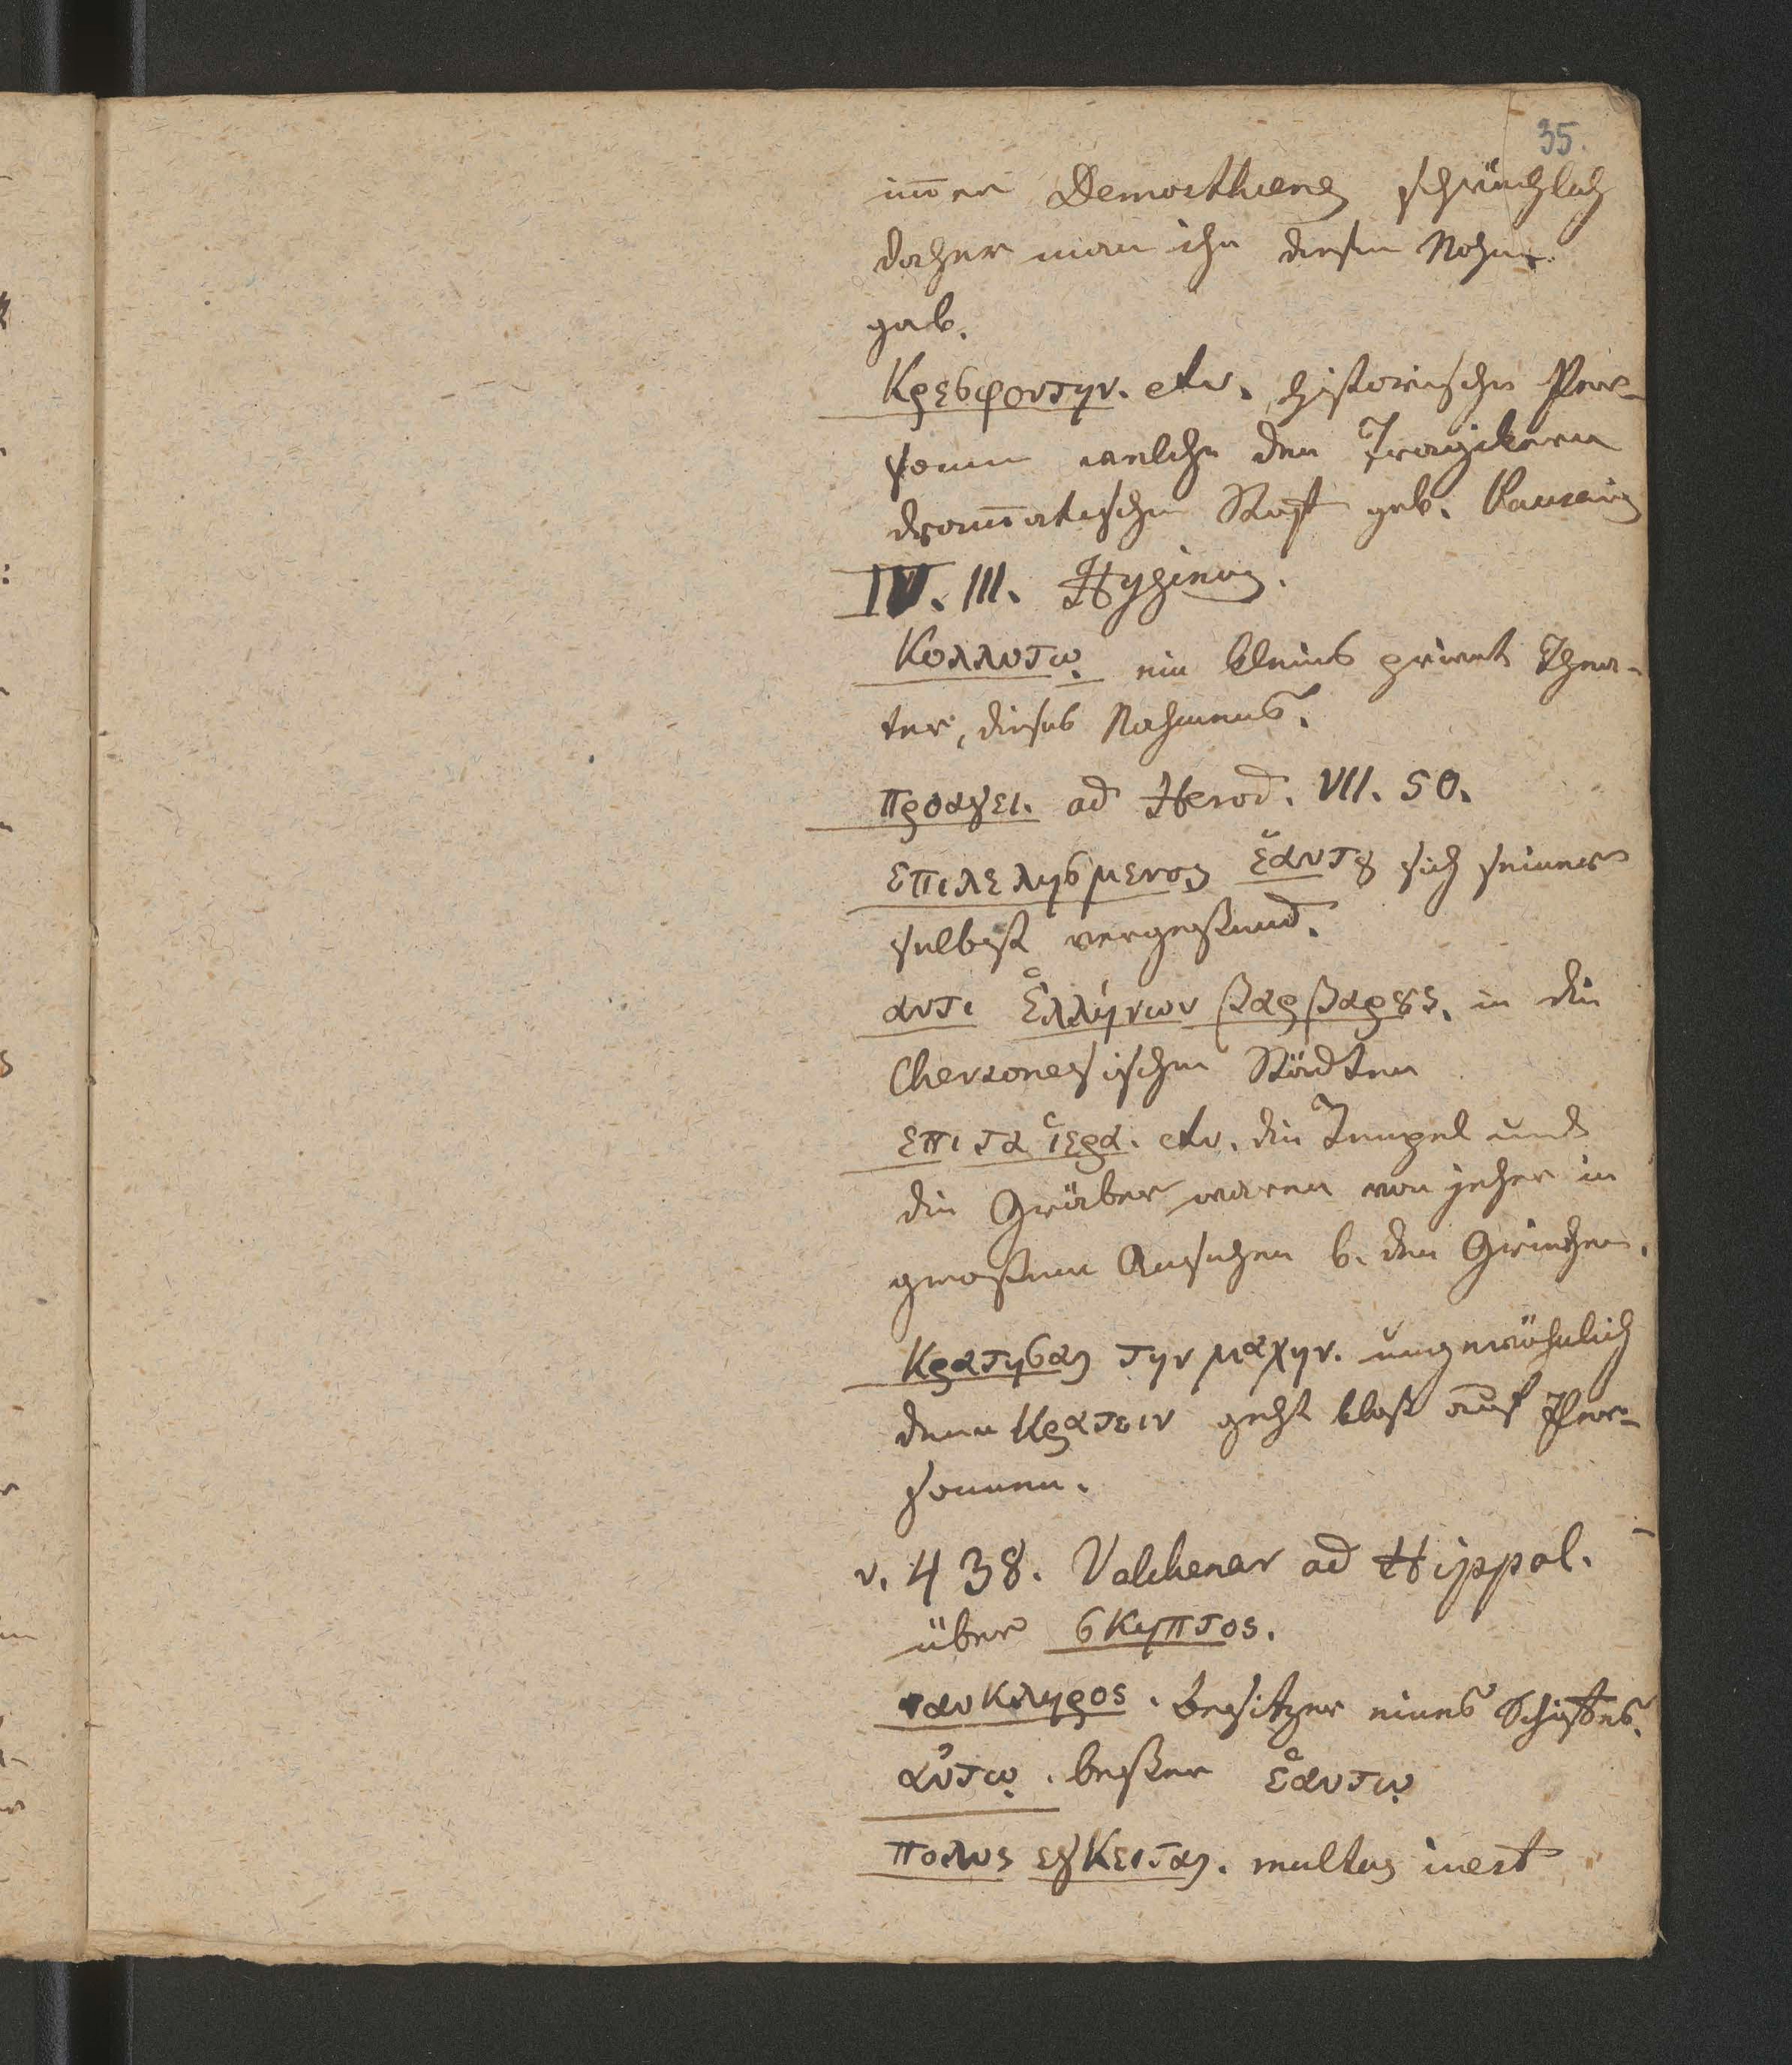 35.
im̅er Demosthenes schwächlich
daher man ihn diesen Nahm̅
gab.
Κρεσφοντην. etc. historische Per-
sonen welche den Tragikern
dram̅atischen Stoff gab. Pausanias
IV. III. Hyginus.
Κολλυτῳ ein kleines privat Thea-
ter, dieses Nahmens.
προαγει. ad Herod. VII. 50.
επιλελησμενος ἑαυτȣ sich seiner
selbst vergessend.
αντι Ἑλλήνων βαρβαρȣς. in den
Chersonesischen Städten
επι τα ἱερα. etc. die Tempel und
die Gräber waren von jeher in
grossem Ansehen b. den Griechen.
Κρατησας την μαχην. ungewöhnlich
denn Κρατειν geht bloß auf Per-
sonnen.
v. 438. Valckenar ad Hippol.
über σκηπτος.
ναυκληρος. besitzer eines Schiffes.
αὐτῳ. besser ἑαυτῳ
πολυς εγκειται. multus inest